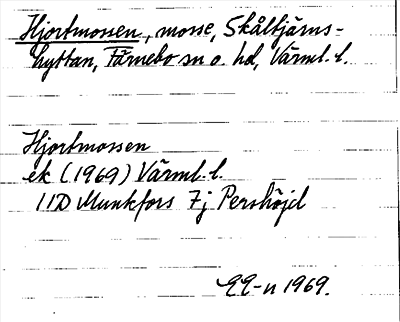 Hjortmossen, mosse, Skåltjärns-
hyttan, Färnebo sn o. hd, Värml. l.
Hjortmossen
ek (1969) Värml. l.
11D Munkfors 7j Pershöjd
EE-n 1969.